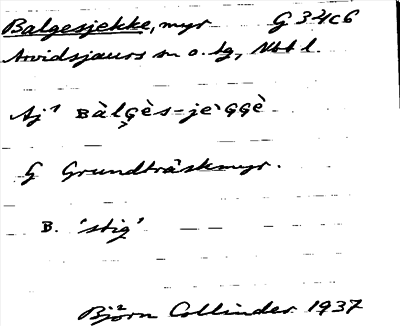 Balgesjekke, myr G 34c6
Arvidsjaurs sn o. tg, Nbt l.
Aj¹ Bàlgès-jèGGè
G Grundträskmyr.
B. 'stig'
Björn Collinder 1937